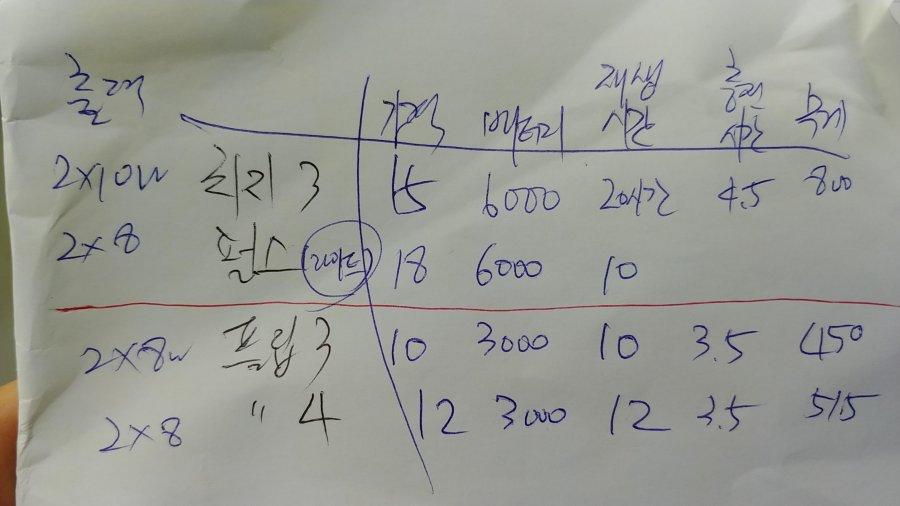 출력 가격 배터리 재생시간 충전시간 무게
2x10w 차지 3 15 6000 20시간 4.5 800
2x8 펄스 (라이트) 18 6000 10
2x8w 플립 3 10 3000 10 3.5 450
2x8 " 4 12 3000 12 3.5 515